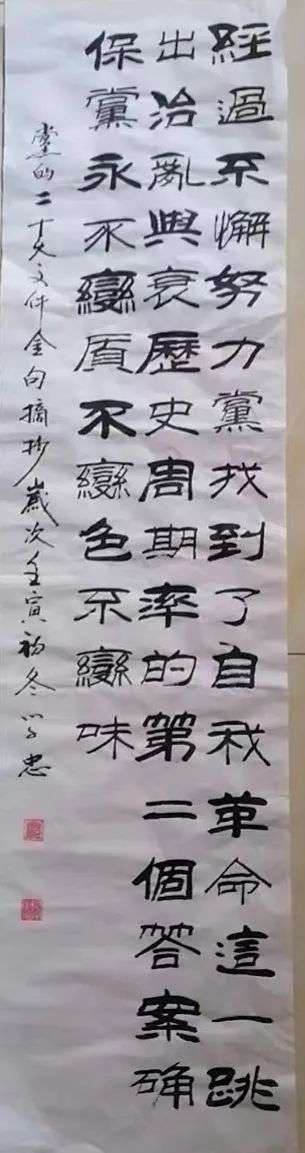 經過不懈努力黨找到了自我革命這一跳
出治亂興衰歷史周期率的第二個答案确
保黨永不變質不變色不變味
黨的二十大文件金句摘抄歲次壬寅初冬小忠